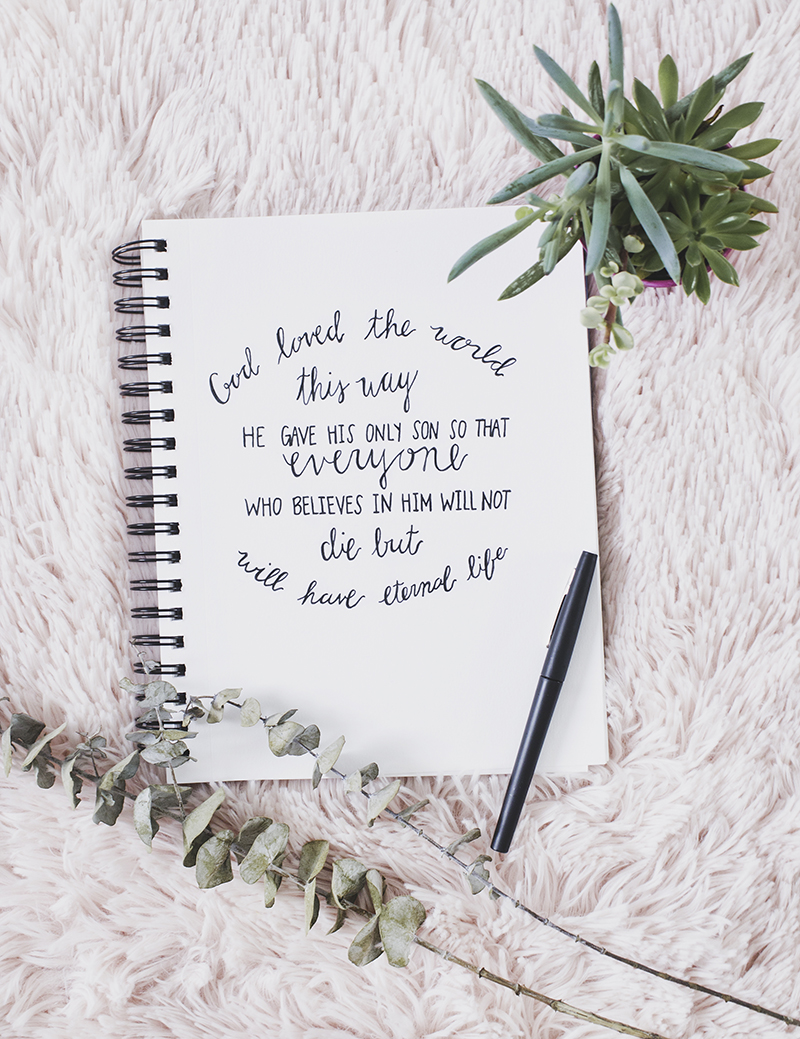 God loved the world
this way
HE GAVE HIS ONLY SON SO THAT
everyone
WHO BELIEVES IN HIM WILL NOT
die but
will have eternal life